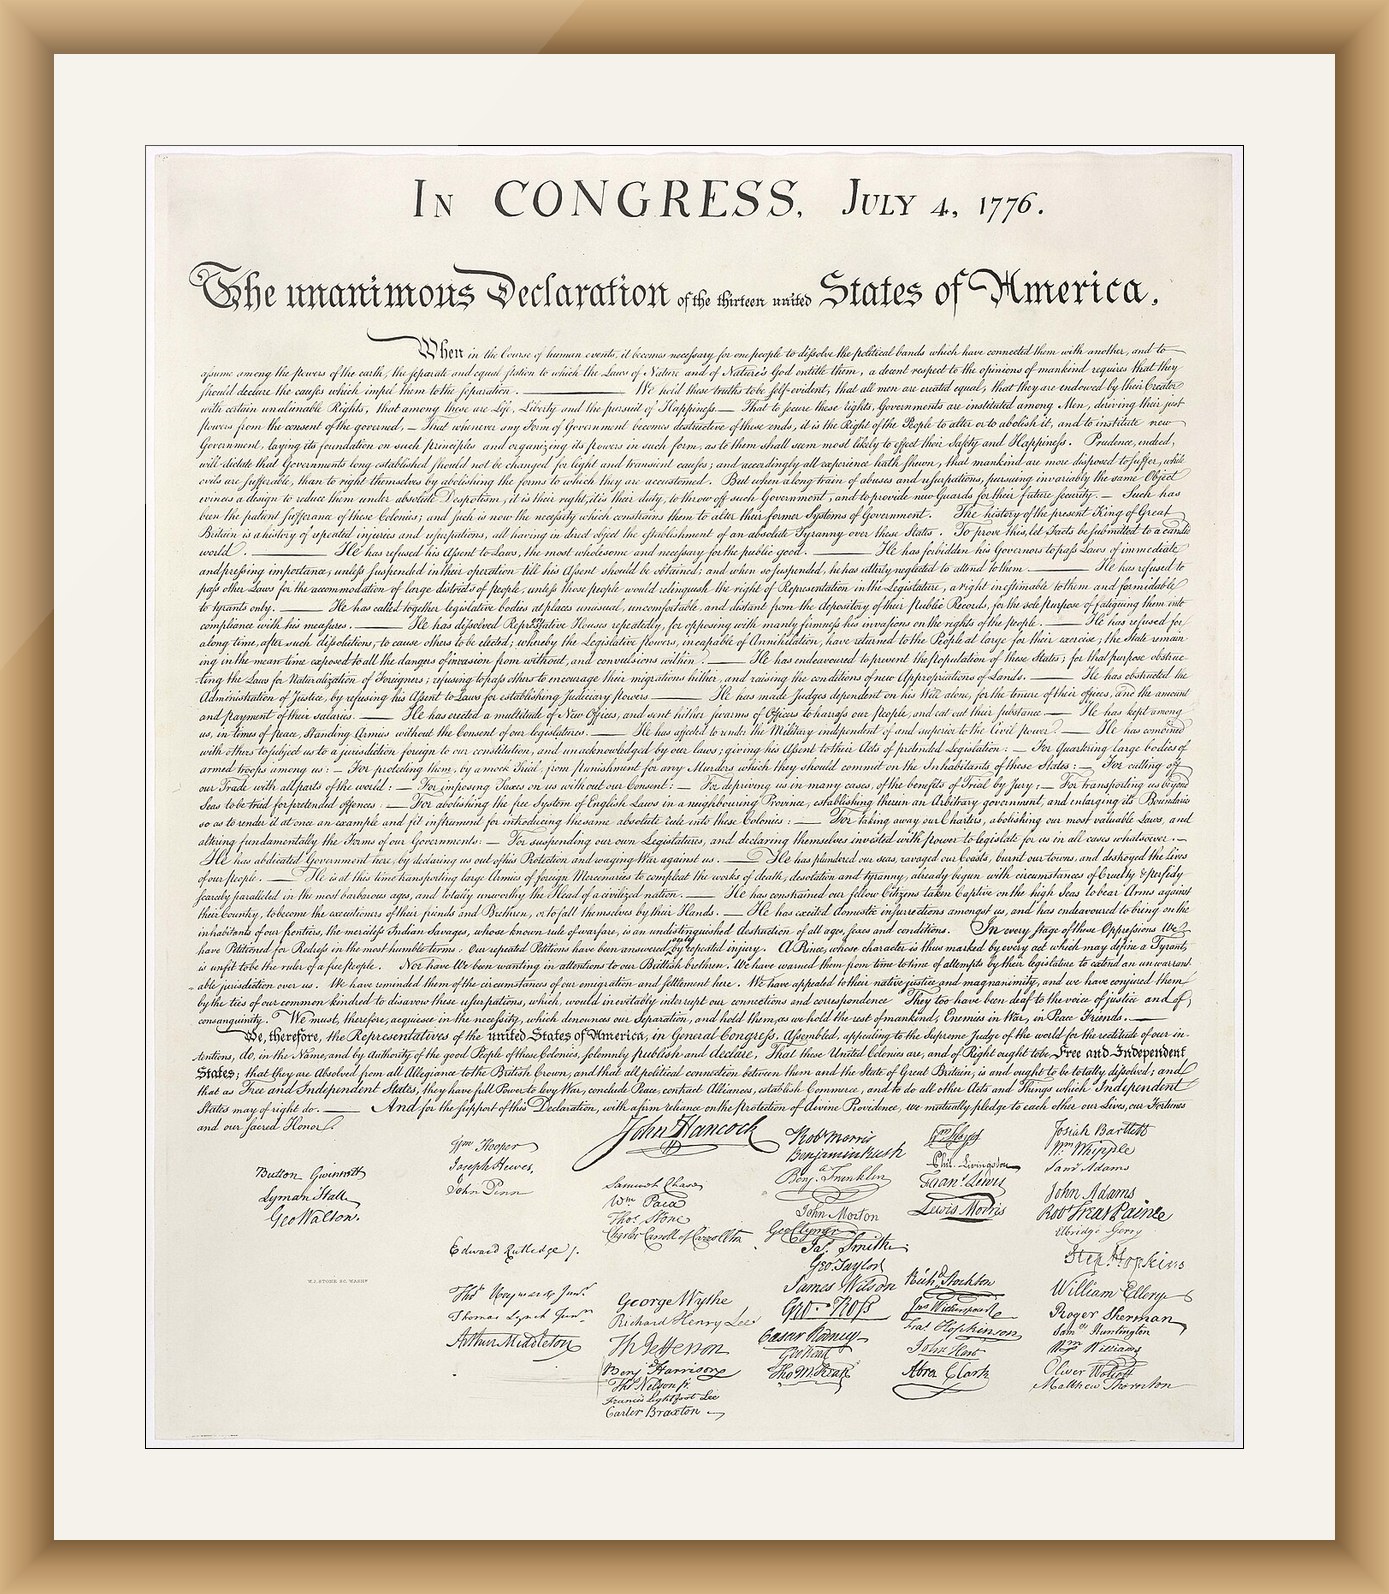 In CONGRESS, July 4, 1776.
The unanimous Declaration of the thirteen united States of America,
When in the Course of human events, it becomes necessary for one people to dissolve the political bands which have connected them with another, and to
assume among the powers of the earth, the separate and equal station to which the Laws of Nature and of Nature's God entitle them, a decent respect to the opinions of mankind requires that they
should declare the causes which impel them to the separation. — We hold these truths to be self-evident, that all men are created equal, that they are endowed by their Creator
with certain unalienable Rights, that among these are Life, Liberty and the pursuit of Happiness.— That to secure these rights, Governments are instituted among Men, deriving their just
powers from the consent of the governed, — That whenever any Form of Government becomes destructive of these ends, it is the Right of the People to alter or to abolish it, and to institute new
Government, laying its foundation on such principles and organizing its powers in such form, as to them shall seem most likely to effect their Safety and Happiness. Prudence, indeed,
will dictate that Governments long established should not be changed for light and transient causes; and accordingly all experience hath shewn, that mankind are more disposed to suffer, while
evils are sufferable, than to right themselves by abolishing the forms to which they are accustomed. But when a long train of abuses and usurpations, pursuing invariably the same Object
evinces a design to reduce them under absolute Despotism, it is their right, it is their duty, to throw off such Government, and to provide new Guards for their future security. — Such has
been the patient sufferance of these Colonies; and such is now the necessity which constrains them to alter their former Systems of Government. The history of the present King of Great
Britain is a history of repeated injuries and usurpations, all having in direct object the establishment of an absolute Tyranny over these States. To prove this, let Facts be submitted to a candid
world. — He has refused his Assent to Laws, the most wholesome and necessary for the public good. — He has forbidden his Governors to pass Laws of immediate
and pressing importance, unless suspended in their operation till his Assent should be obtained; and when so suspended, he has utterly neglected to attend to them. — He has refused to
pass other Laws for the accommodation of large districts of people, unless those people would relinquish the right of Representation in the Legislature, a right inestimable to them and formidable
to tyrants only. — He has called together legislative bodies at places unusual, uncomfortable, and distant from the depository of their Public Records, for the sole purpose of fatiguing them into
compliance with his measures. — He has dissolved Representative Houses repeatedly, for opposing with manly firmness his invasions on the rights of the people. — He has refused for
a long time, after such dissolutions, to cause others to be elected; whereby the Legislative powers, incapable of Annihilation, have returned to the People at large for their exercise; the State remain
ing in the mean time exposed to all the dangers of invasion from without, and convulsions within. — He has endeavoured to prevent the population of these States; for that purpose obstruc
ting the Laws for Naturalization of Foreigners; refusing to pass others to encourage their migrations hither, and raising the conditions of new Appropriations of Lands. — He has obstructed the
Administration of Justice, by refusing his Assent to Laws for establishing Judiciary powers — He has made Judges dependent on his Will alone, for the tenure of their offices, and the amount
and payment of their salaries. — He has erected a multitude of New Offices, and sent hither swarms of Officers to harrass our people, and eat out their substance — He has kept among
us, in times of peace, Standing Armies without the Consent of our legislatures. — He has affected to render the Military independent of and superior to the Civil power. — He has combined
with others to subject us to a jurisdiction foreign to our constitution, and unacknowledged by our laws; giving his Assent to their Acts of pretended Legislation: — For Quartering large bodies of
armed troops among us: — For protecting them, by a mock Trial, from punishment for any Murders which they should commit on the Inhabitants of these States: — For cutting off
our Trade with all parts of the world: — For imposing Taxes on us without our Consent: — For depriving us in many cases, of the benefits of Trial by Jury: — For transporting us beyond
Seas to be tried for pretended offences: — For abolishing the free System of English Laws in a neighbouring Province, establishing therein an Arbitrary government, and enlarging its Boundaries
so as to render it at once an example and fit instrument for introducing the same absolute rule into these Colonies: — For taking away our Charters, abolishing our most valuable Laws, and
altering fundamentally the Forms of our Governments: — For suspending our own Legislatures, and declaring themselves invested with power to legislate for us in all cases whatsoever. —
He has abdicated Government here, by declaring us out of his Protection and waging War against us. — He has plundered our seas, ravaged our Coasts, burnt our towns, and destroyed the lives
of our people. — He is at this time transporting large Armies of foreign Mercenaries to compleat the works of death, desolation and tyranny, already begun with circumstances of Cruelty & perfidy
scarcely paralleled in the most barbarous ages, and totally unworthy the Head of a civilized nation. — He has constrained our fellow Citizens taken Captive on the high Seas to bear Arms against
their Country, to become the executioners of their friends and Brethren, or to fall themselves by their Hands. — He has excited domestic insurrections amongst us, and has endeavoured to bring on the
inhabitants of our frontiers, the merciless Indian Savages, whose known rule of warfare, is an undistinguished destruction of all ages, sexes and conditions. In every stage of these Oppressions We
have Petitioned for Redress in the most humble terms: Our repeated Petitions have been answered only by repeated injury. A Prince, whose character is thus marked by every act which may define a Tyrant,
is unfit to be the ruler of a free people. Nor have We been wanting in attentions to our Brittish brethren. We have warned them from time to time of attempts by their legislature to extend an unwarrant
able jurisdiction over us. We have reminded them of the circumstances of our emigration and settlement here. We have appealed to their native justice and magnanimity, and we have conjured them
by the ties of our common kindred to disavow these usurpations, which, would inevitably interrupt our connections and correspondence They too have been deaf to the voice of justice and of
consanguinity. We must, therefore, acquiesce in the necessity, which denounces our Separation, and hold them, as we hold the rest of mankind, Enemies in War, in Peace Friends. —
We, therefore, the Representatives of the united States of America, in General Congress, Assembled, appealing to the Supreme Judge of the world for the rectitude of our in-
tentions, do, in the Name, and by Authority of the good People of these Colonies, solemnly publish and declare, That these United Colonies are, and of Right ought to be Free and Independent
States; that they are Absolved from all Allegiance to the British Crown, and that all political connection between them and the State of Great Britain, is and ought to be totally dissolved; and
that as Free and Independent States, they have full Power to levy War, conclude Peace, contract Alliances, establish Commerce, and to do all other Acts and Things which Independent
States may of right do. — And for the support of this Declaration, with a firm reliance on the protection of divine Providence, we mutually pledge to each other our Lives, our Fortunes
and our sacred Honor.
Button Gwinnett
Lyman Hall
Geo Walton.
Wm Hooper
Joseph Hewes,
John Penn
Edward Rutledge /.
Thos Heyward Junr.
Thomas Lynch Junr.
Arthur Middleton
John Hancock
Samuel Chase
Wm Paca
Thos Stone
Charles Carroll of Carrollton
George Wythe
Richard Henry Lee
Th Jefferson
Benja Harrison
Thos Nelson jr.
Francis Lightfoot Lee
Carter Braxton
Robt Morris
Benjamin Rush
Benja Franklin
John Morton
Geo Clymer
Jas. Smith
Geo. Taylor
James Wilson
Geo. Ross
Caesar Rodney
Geo Read
Tho M:Kean
Wm Floyd
Phil. Livingston
Frans. Lewis
Lewis Morris
Richd. Stockton
Jno Witherspoon
Fras. Hopkinson
John Hart
Abra Clark
Josiah Bartlett
Wm Whipple
Saml Adams
John Adams
Robt Treat Paine
Elbridge Gerry
Step. Hopkins
William Ellery
Roger Sherman
Saml Huntington
Wm Williams
Oliver Wolcott
Matthew Thornton
W.J. STONE SC. WASHN